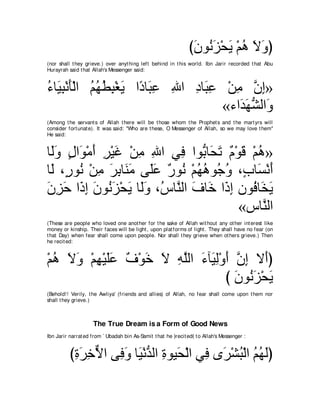 (وَلاَ هُمْ يَحْزَنُونَ)
(nor shall they grieve.) over anything left behind in this world. Ibn Jarir recorded that Abu
Hurayrah said that Allah's Messenger said:
«إِنَّ مِنْ عِبَادِ اللهِ عِبَادًا يَغْبِطُهُمُ الْأَنْبِيَاءُ
وَالشُّهَدَاءُ»
(Among the servants of Allah there will be those whom the Prophets and the martyrs will
consider fortunate). It was said: "Who are these, O Messenger of Allah, so we may love them"
He said:
«هُمْ قَوْمٌ تَحَابُّوا فِي اللهِ مِنْ غَيْرِ أَمْوَالٍ وَلَا
أَنْسَابٍ، وُجُوهُهُمْ نُورٌ عَلَى مَنَابِرَ مِنْ نُورٍ، لَا
يَخَافُونَ إِذَا خَافَ النَّاسُ، وَلَا يَحْزَنُونَ إِذَا حَزِنَ
النَّاس»
(These are people who loved one another for the sake of Allah without any other interest like
money or kinship. Their faces will be light, upon platforms of light. They shall have no fear (on
that Day) when fear shall come upon people. Nor shall they grieve when others grieve.) Then
he recited:
(أَلا إِنَّ أَوْلِيَآءَ اللَّهِ لاَ خَوْفٌ عَلَيْهِمْ وَلاَ هُمْ
يَحْزَنُونَ )
(Behold! Verily, the Awliya' (friends and allies) of Allah, no fear shall come upon them nor
shall they grieve.)
The True Dream is a Form of Good News
Ibn Jarir narrated from `Ubadah bin As-Samit that he (recited) to Allah's Messenger :
(لَهُمُ الْبُشْرَى فِي الْحَيوةِ الدُّنْيَا وَفِى الاٌّخِرَةِ)